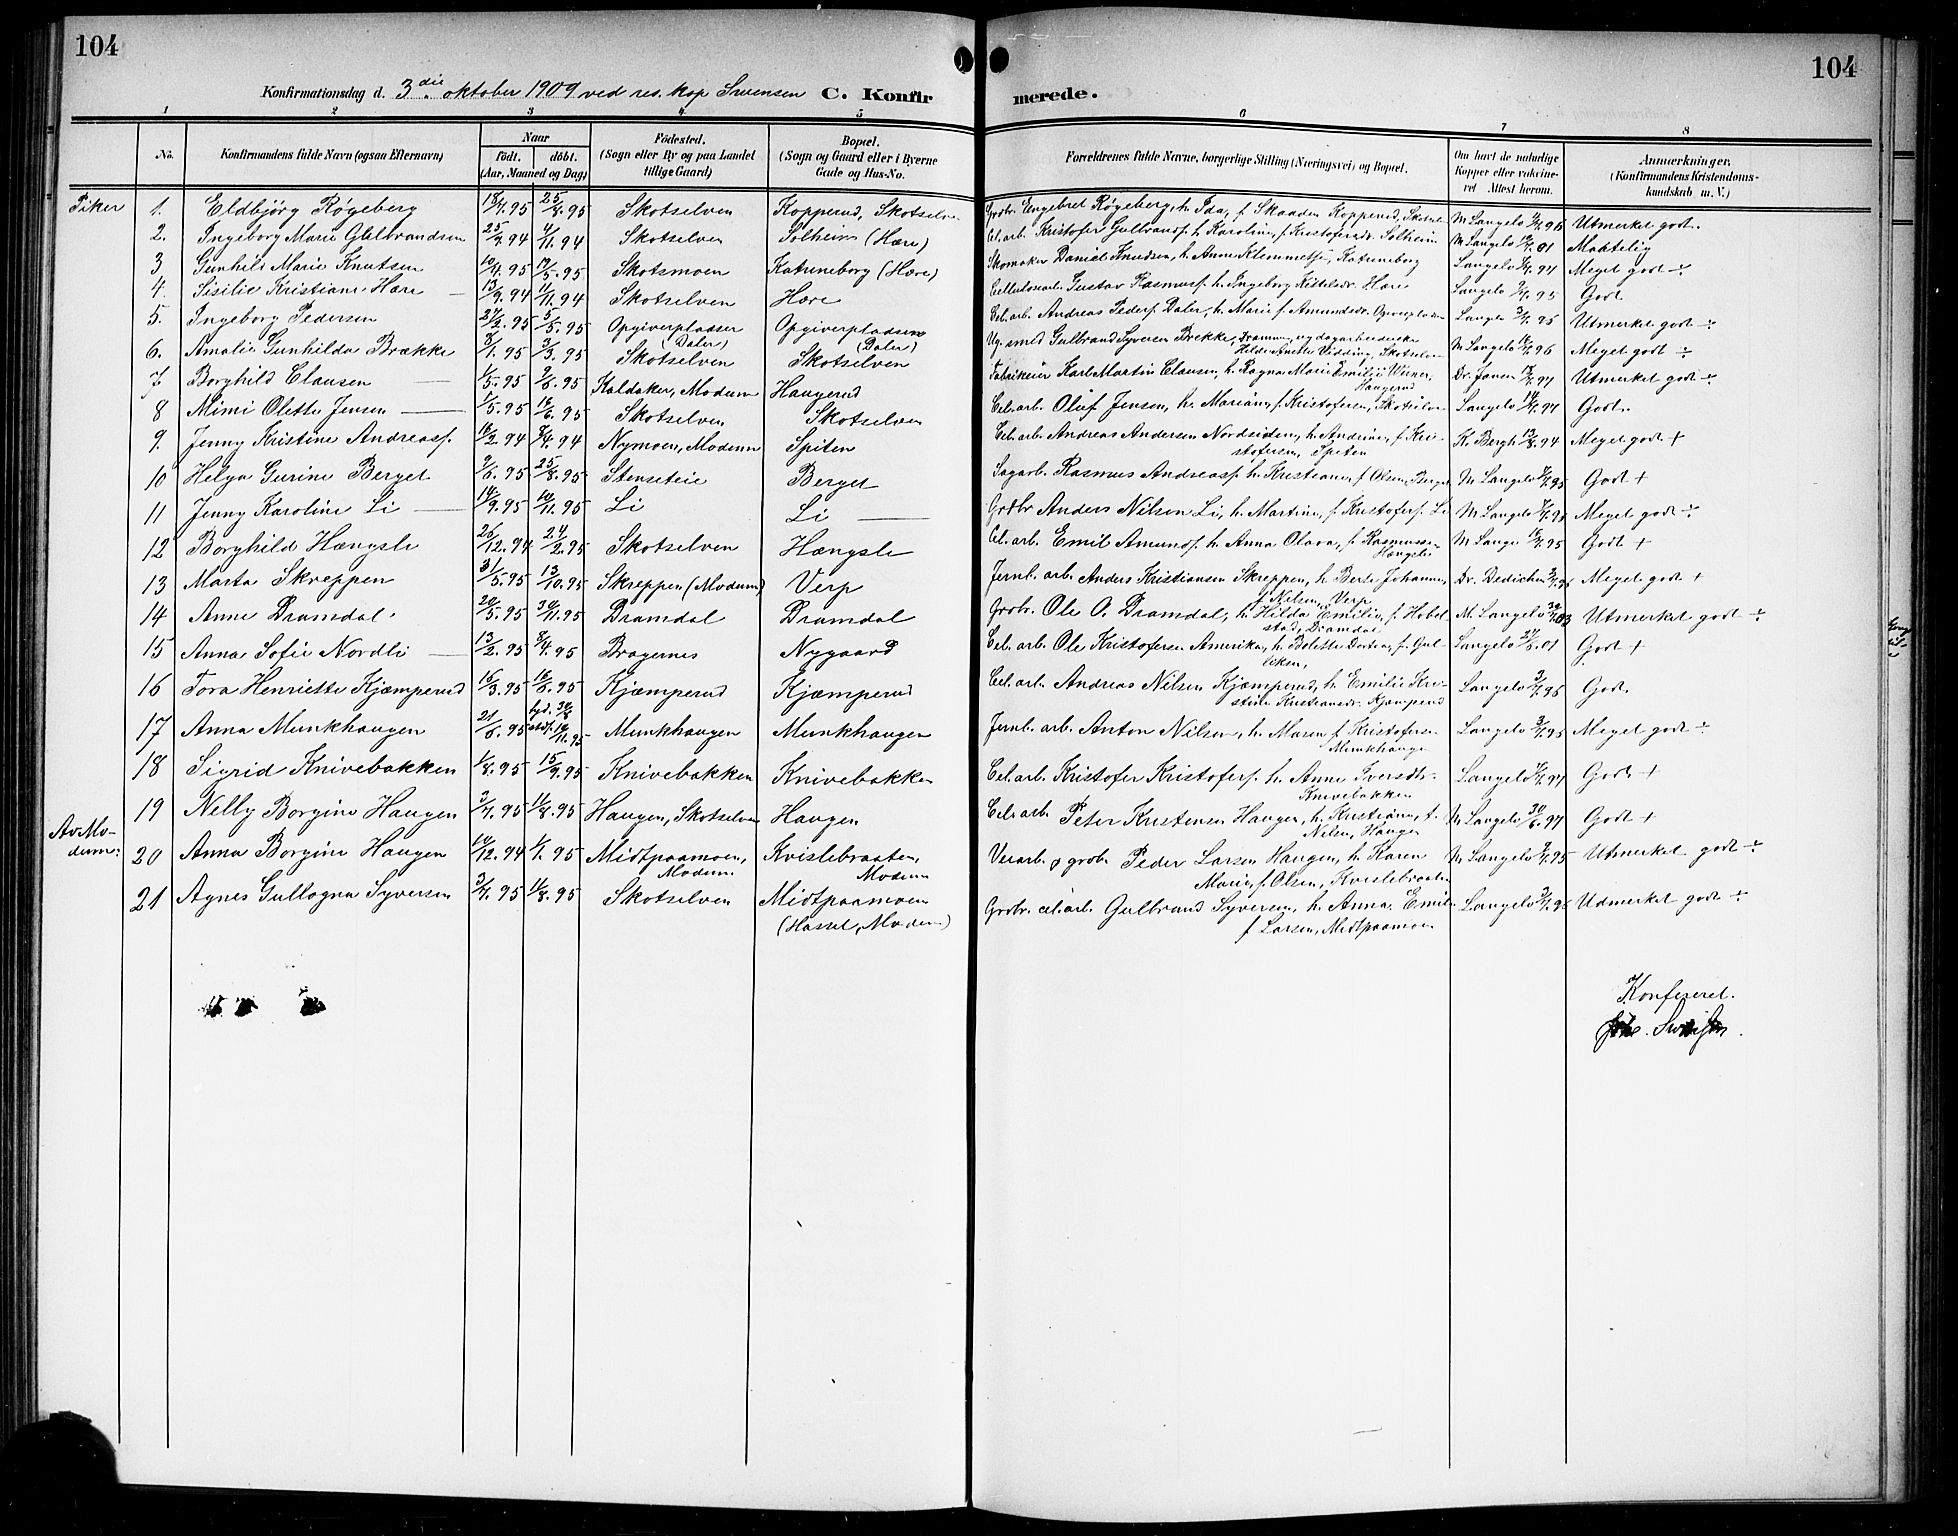 104
104
Konfirmationsdag d. 3die oktober 1909 ved res. kap Svensen C. Konfirmerede.
1 2 3 4 5 6 7 8
No. Konfirmandens fulde Navn (ogsaa Efternavn) Naar födt. döbt. (Aar, Maaned og Dag) Födested. (Sogn eller By og paa Landet tillige Gaard) Bopæl. (Sogn og Gaard eller i Byerne Gade og Hus-No. Forældrenes fulde Navne, borgerlige Stilling (Næringsvei) og Bopæl. Om havt de naturlige Kopper eller vakcineret Attest herom. Anmærkninger. (Konfirmandens Kristendomskundskab m. V.)
Piker 1. Eldbjörg Røgeberg 95 95 Skotselven Kopperud, Skotselv Grdbr. Engebret Røgeberg, h. Ida, f. Skaaden Kopperud, M Langelo 96 Utmerket godt.
2. Ingeborg Marie Gulbrandsen 94 4/11.94 Skotselven Solheim (Hære) Cel. arb. Kristofer Gulbrandsf. h. Karoline, f. Kristofersdr. Solheim M Langelo 01 Maatelig
3 Gunhild Marie Knutsen 95 95 Skotsmoen Katrineborg (Hære) Skomaker Daniel Knudsen, h. Anne Klemmetsr, Katrineborg Langelo Meget godt ÷
4. Sisilie Kristiane Hære 13/9.94 11/11.94 Skotselven Hære Gustav Rasmusf. h. Ingeborg Kittilsdr. Hære Langelo 95 Godt
5. Ingeborg Pedersen 27/2.95 5/5.95 Opgiverpladsen (Daler) Opgiverpladsen (Daler) Cel. arb. Andreas Pedersf. Daler, h. Marie f. Amundsdr. Langelo 95 Utmerket godt ÷
6. Amalie Gunhilda Brække 8/1.95 3/3.95 Skotselven Skotselven Ug. smed Gulbrand Syversen Brekke, Dramm. og dagarbeiderske Hilda Anette Vidding, Skotselv M Langelo 96 Meget godt ÷
7 Borghild Clausen 1/5.95 95 Kaldaker, Modum Haugerud Fabrikeier Karl Martin Clausen, h. Ragna Marie Emilie Werner, Haugerud Dr. Jansen Utmerket godt ÷
8 Mimi Olette Jensen 1/5.95 16/6.95 Skotselven Skotselven Cel. arb. Oluf Jensen, h. Mariane f. Kristofersen, Skotselv Langelo Godt.
9. Jenny Kristine Andreasf. 94 94 Nymoen, Modum Spiten Cel. arb. Andreas Andersen Nordsiden, h. Andrine, f. Kristofersen, Spiten K. Bergh 94 Meget godt +
10 Helga Gurine Berget 9/6.95 25/8.95 Stenseteie Berget Sagarb. Rasmus Andreasf. h. Kristiane f. Olsen, Berget M Langelo 95 Godt +
11 Jenny Karoline Li 14/9.95 10/11.95 Li Li Grdbr Anders Nilsen Li, h. Martine, f. Kristofersf. Li M Langelo Meget godt ÷
12 Borghild Hængsle 26/12.94 24/2.95 Skotselven Hængsle Cel. arb. Emil Amundsf. h. Anna Olava, f. Rasmussen Hængsle M Lange 95 Godt +
13 Marta Skreppen 31/5.95 13/10.95 Skreppen (Modum) Verp Jernb. arb. Anders Kristiansen Skreppen, h. Berte Johanne, f. Nilsen, Verp Dr. Dedichen Meget godt +
14 Anne Dramdal 20/5.95 30/11.95 Dramdal Dramdal Grdbr. Ole O. Dramdal, h. Hilda Emilie, f. Hobelstad, Dramdal M. Langelo 03 Utmerket godt ÷
15 Anna Sofie Nordli 13/2.95 8/4.95 Bragernes Nygaard Cel. arb. Ole Kristofersen Amerika, h. Bolette Dortea, f. Gulliksen, Langelo 01 Godt +
16 Tora Henriette Kjæmperud 16/3.95 16/6.95 Kjæmperud Kjæmperud Cel. arb. Andreas Nilsen Kjæmperud, h. Emilie Kristine Kristiansdr. Kjæmperud Langelo 96 Godt
17 Anna Munkhaugen 21/6.95 Munkhaugen Munkhaugen Jernb. arb. Anton Nilsen, h. Maren f. Kristofersen Munkhaugen Langelo 95 Meget godt ÷
18 Sigrid Knivebakken 1/8.95 15/9.95 Knivebakken Knivebakken Cel. arb. Kristofer Kristofersf. h. Anne Iversdtr. Knivebakken Langelo Godt +
19 Nelly Borgine Haugen 95 11/8.95 Haugen, Skotselven Haugen Cel. arb Peter Kristensen Haugen, h. Kristiane, f. Nilsen, Haugen M Langelo 30/6.97 Godt +
Av Modum: 20 Anna Borgine Haugen 10/12.94 1/1.95 Midtpaamoen, Modum Kvislebraaten, Modum Verarb. & grdbr. Peder Larsen Haugen, h. Karen Marie, f. Olsen, Kvislebraaten M Langelo 95 Utmerket godt ÷
21 Agnes Gullogna Syversen 95 11/8.95 Skotselven Midtpaamoen (Hassel, Modum) Grdbr. cel. arb. Gulbrand Syversen, h. Anna Emilie f. Larsen, Midtpaamoen Langelo Udmerket godt ÷
Konfereret.